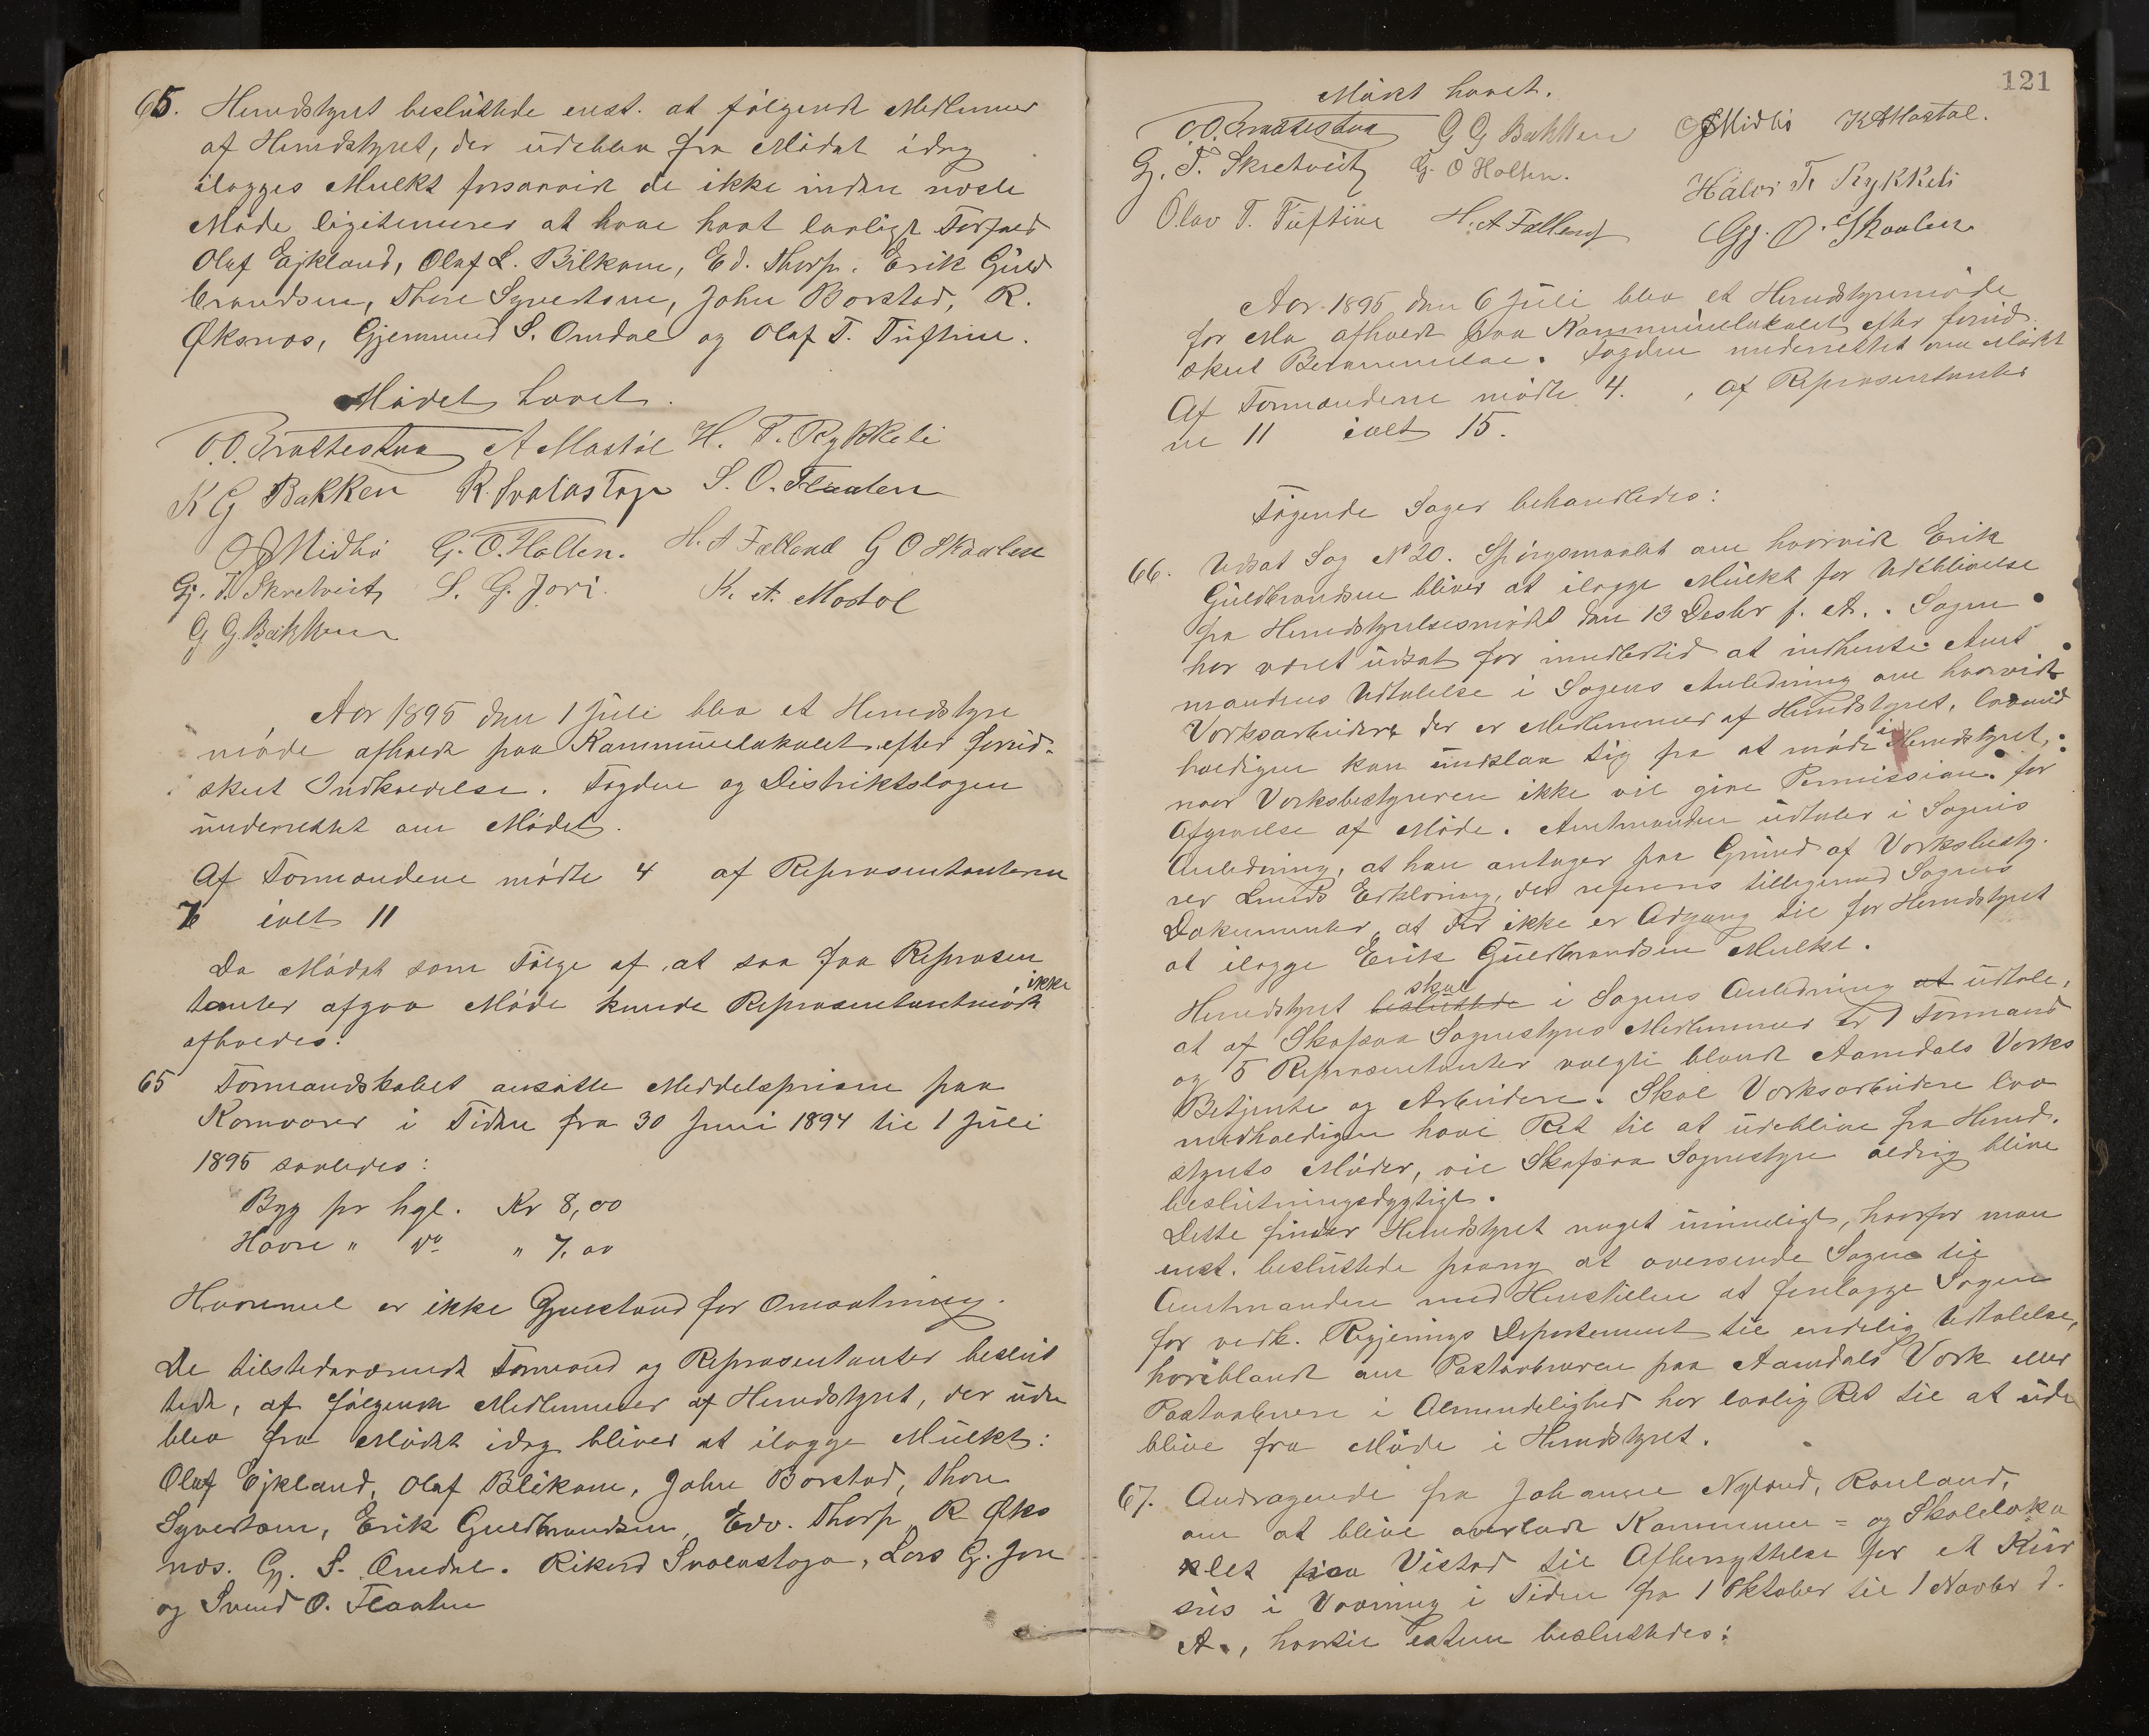 65. Herredstyret besluttede enst. at følgende Medlemmer
af Herredstyret, der udeblev fra Mødet idag
ilægges Mulkt forsaavidt de ikke inden næste
Møde ligitimerer at have havt lovligt Forfald
Olaf Ejkland, Olaf L. Bilkom, Ed. Thorp. Erik Guld
brandsen, Thore Syvertsen, John Borstad, R.
Øksnæs, Gjermund S. Omdal og Olaf T. Tuftine.
Mødet hævet.
O.O. Brattestaa A Mostøl H. T. Rykkeli
K G Bakken R. Svalastoga S. O. Flaaten
O J Midbø G. O. Holten. H. A Felland G O Skaalen
Gj. T. Skretveit, L. G. Jori. K. A. Mostøl
G G. Bakken
Aar 1895 den 1 Juli blev et Herredstyre
møde afholdt paa Kommunelokalet efter forud-
skeet Indkaldelse. Fogden og Distriktslægen
underrettet om Mødet.
Af Formændene mødte 4 af Repræsentanterne
7 ialt 11
Da Mødet som Følge af at saa faa Repræsen
tanter afgav Møde kunde Repræsentantmøde ikke
afholdes.
65 Formandskabet ansatte Meddelsprisen paa
Kornvarer i Tiden fra 30 Juni 1894 til 1 Juli
1895 saaledes:
Byg pr hgl. Kr 8,00
Havre " do " 7,00
Havremel er ikke Gjenstand for Omsætning.
De tilstedeværende Formænd og Repræsentanter beslut
tede, at følgende Medlemmer af Herredstyret, der ude
blev fra Mødet idag bliver at ilægge Mulkt:
Olaf Ejkland, Olaf Blikom, John Borstad, Thore
Syvertsen, Erik Guldbrandsen, Edv. Thorp, R Øks
næs. Gj. S. Omdal. Rikard Svalastoga, Lars G. Jore
og Svend O. Flaaten
121
Mødet hævet.
O.O. Brattestaa G G Bakken O J Midbø K A Mostøl.
Gj. T. Skretveit G. O Holten. Halvor T. Rykkeli
Olav T. Tuftine H. A Felland Gj. O. Skaalen
Aar 1895 den 6 Juli blev et Herredstyremøde
for Mo afholdt paa Kommunelokalet efter forud
skeet Berammelse. Fogden underrettet om Mødet
Af Formændene mødte 4. , af Repræsentanter
ne 11 ialt 15.
Følgende Sager behandledes:
66. Udsat Sag No 20. Spørgsmaalet om hvorvidt Erik
Guldbrandsen bliver at ilægge Mulkt for Udeblivelse
fra Herredstyrelsesmødet den 13 Desbr f. A. . Sagen
har været udsat for imidlertid at indhente Amt
mandens Udtalelse i Sagens Anledning om hvorvidt
Verksarbeidere der er Medlemmer af Herredstyret, lovmed
holdigen kan undslaa sig fra at møde i Herredstyret,
naar Verksbestyreren ikke vil give Permission for
Afgivelse af Møde. Amtmanden udtaler i Sagens
Anledning, at han antager paa Grund af Verksbesty.
rer Lunds Erklæring, der refereres tilligemed Sagens
Dokumenter, at der ikke er Adgang til for Herredstyret
at ilægge Erik Guldbrandsen Mulkt.
Herredstyret besluttede skal i Sagens Anledning at udtale,
at af Skafsaa Sognestyres Medlemmer er 1 Formand
og 5 Repræsentanter valgte blandt Aamdals Verks
Betjente og Arbeidere. Skal Verksarbeidere lov
medholdigen have Ret til at udeblive fra Herred.
styrets Møder, vil Skafsaa Sognestyre aldrig blive
beslutningsdygtigt.
Dette finder Herredstyret noget urimeligt, hvorfor man
enst. besluttede paany at oversende Sagen til
Amtmanden med Henstillen at forelægge Sagen
for vedk. Regjerings Departement til endelig Udtalelse,
horiblandt om Postaabneren paa Aamdals Verk eller
Postaabnere i Almindelighed har lovlig Ret til at ude
blive fra Møde i Herredstyret.
67. Andragende fra Johanne Nyland, Rauland,
om at blive overladt Kommune- og Skoleloka
let paa Vistad til Afbenyttelse for et Kur
sus i Vævning i Tiden fra 1 Oktober til 1 Novbr d.
A., hvortil enstem besluttedes: